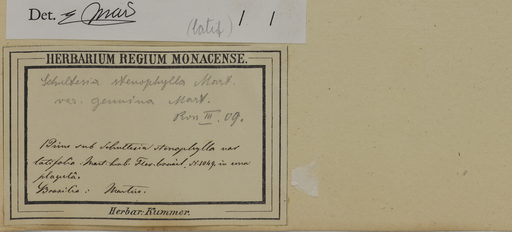 Det. E Maas
(latif) / /
HERBARIUM REGIUM MONACENSE.
Schultesia stenophylla Mart.
var. genuina Mart.
Ros III. 09.
Bine sub Schultesia stenophylla var
latifolia. Mart. herb. Flor. brasil. N. 1049. in una
plagula.
Brasilia: Martius.
Herbar. Kummer.